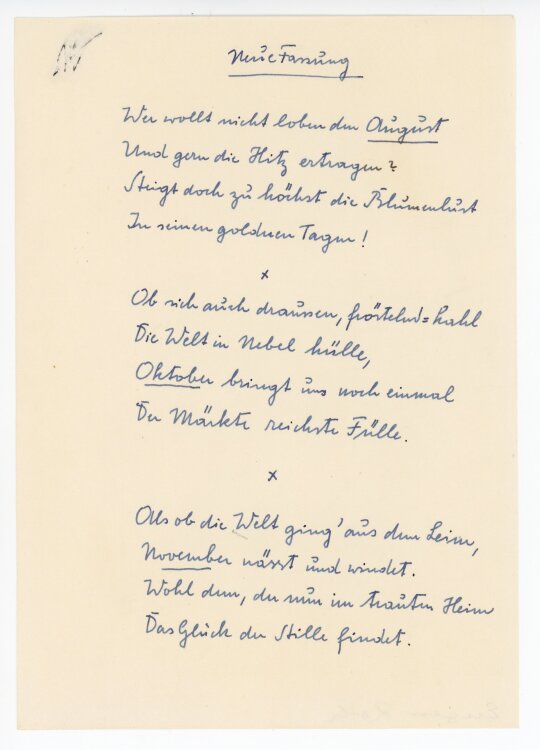 Neue Fassung
Wer wollt nicht loben den August
Und gern die Hitz ertragen?
Steigt doch zu höchst die Blumenlust
In seinen goldnen Tagen!
x
Ob sich auch draussen, fröstelnd=kahl
Die Welt in Nebel hülle,
Oktober bringt uns noch einmal
Der Märkte reichste Fülle.
x
Als ob die Welt ging' aus dem Leim,
November nässt und windet.
Wohl dem, der nun im trauten Heim
Das Glück der Stille findet.